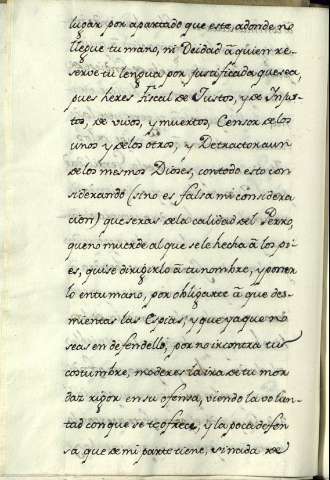 lugar por apartado que este, adonde no
llegue tu mano, ni Deidad a quien re-
serve tu lengua por justificada que sea,
pues heres Fiscal de Justos, y de Injus-
tos, de vivos, y muertos, Censor de los
unos y de los otros, y Detractor aun
de los mesmos Dioses, con todo esto con
siderando (si no es falsa mi considera
cion) que seras de la calidad del Perro,
que no muerde al que se le hecha a los pi-
es, quise dirigirlo a tu nombre, y poner
lo en tu mano, por obligarte a que des-
mientas las Espias, y que ya que no
seas en defendello, por no ir contra tus
costumbre, moderes la ira de tu mor
daz rigor en su ofensa, viendo la volun-
tad con que se te ofrece, y la poca defen
sa que de mi parte tiene, si nada de